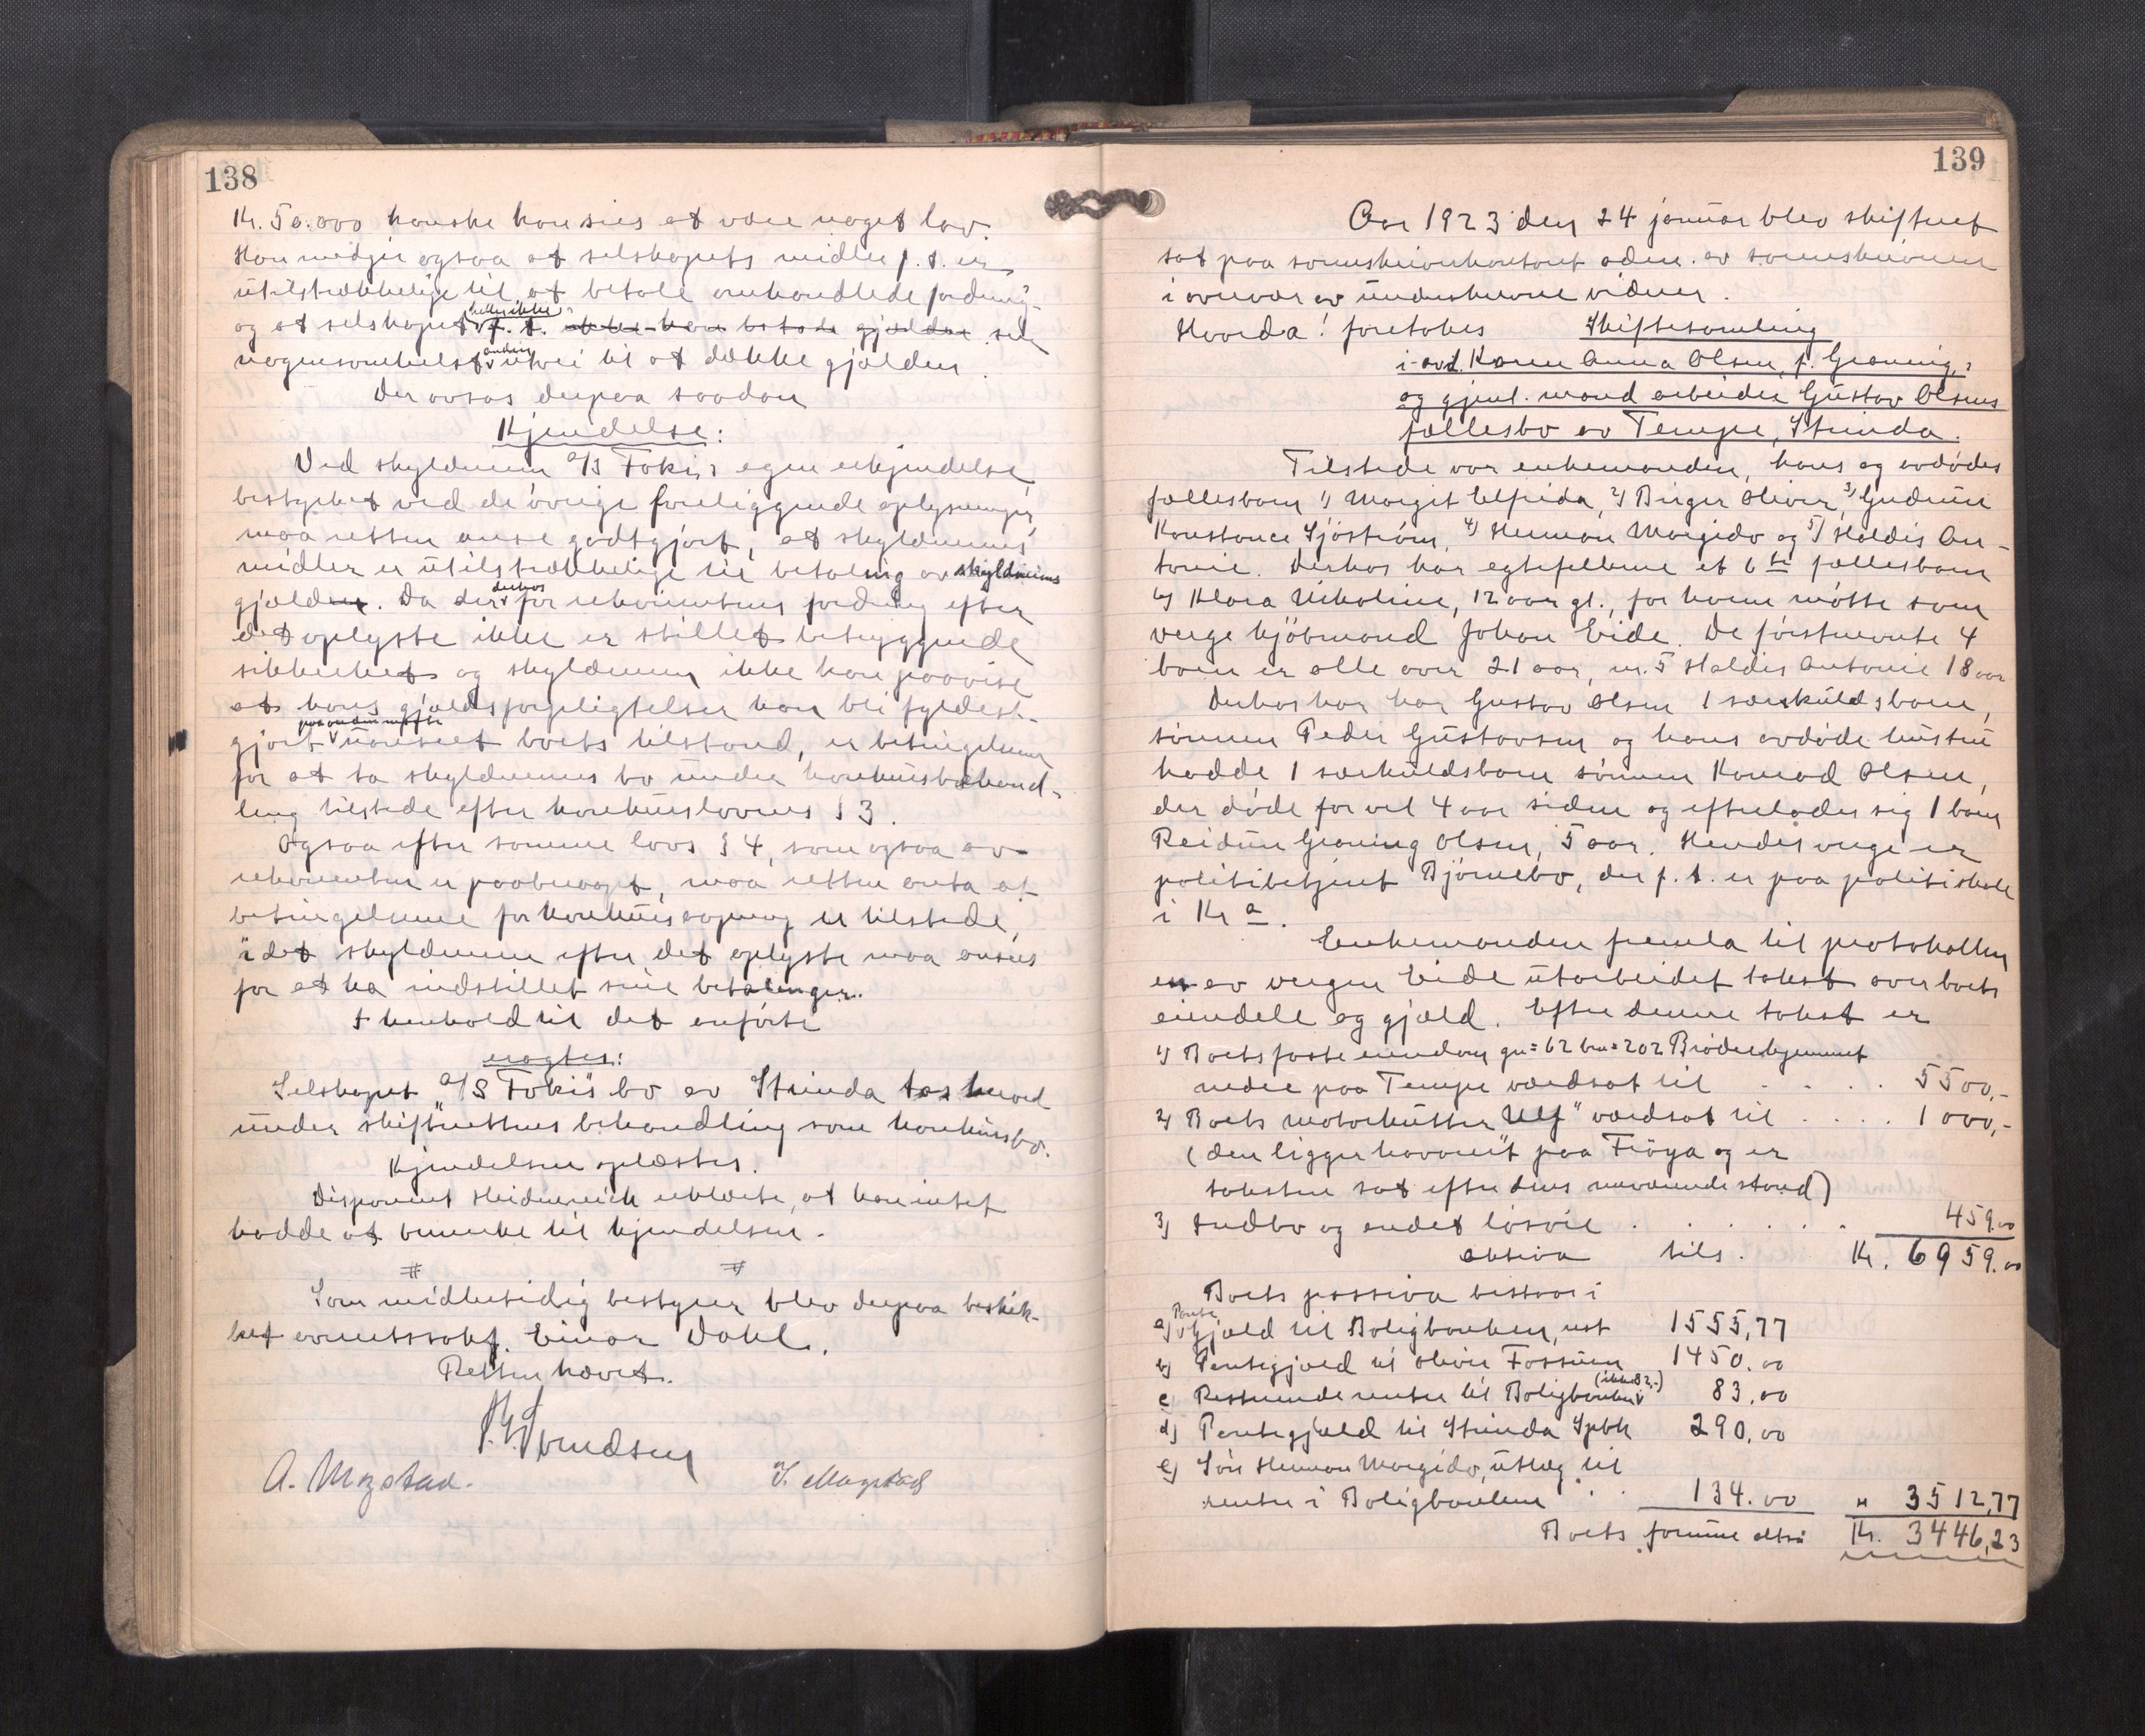 138
Kr. 50.000 kanske kan sies at være noget lav.
Han medgir ogsaa at selskapets midler p. t. er
utilstrækkelige til at betale omhandlede fordring
og at selskapet heller ikke p. t. ikke kan betale gjælden ser
nogensomhelst anden utvei til at dække gjælden.
Der avsas derpaa saadan
Kjendelse:
Ved skyldneren A/S Fokis egen erkjendelse,
bestyrket ved de øvrige foreliggende oplysninger,
maa retten anse godtgjort, at skyldnerens
midler er utilstrækkelige til betaling av skyldnerens
gjælden. Da der derhos for rekvirentens fordring efter
det oplyste ikke er stillet betryggende
sikkerhet og skyldneren ikke kan paavise
at hans gjældsforpligtelser kan bli fyldest-
gjort paa anden maate uanseet boets tilstand, er betingelserne
for at ta skyldnerens bo under konkursbehand-
ling tilstede efter konkurslovens § 3.
Ogsaa efter samme lovs § 4, som ogsaa av
rekvirenten er paaberaapt, maa retten anta at
betingelserne for konkursaapning er tilstede,
idet skyldneren efter det oplyste maa ansees
for at ha indstillet sine betalinger.
I henhold til det anførte
eragtes:
Selskapet A/S "Fokis" bo av Strinda tas herved
under skifterettens behandling som konkursbo.
Kjendelsen oplæstes.
Disponent Heidenreich erklærte, at han intet
hadde at bemerke til kjendelsen.
# #
Som midlertidig bestyrer blev derpaa beskik-
ket overretssakf. Einar Dahl.
Retten hævet.
Svendsen
A. Mogstad. J. Mogstad
139
Aar 1923 den 24 januar blev skifteret
sat paa sorenskriverkontoret adm. av sorenskriveren
i overvær av underskrevne vidner.
Hvorda! foretokes Skiftesamling
i avd. Karen Anna Olsen, f. Graning,s
og gjenl. mand arbeider Gustav Olsens
fællesbo av Tempe, Strinda.
Tilstede var enkemanden, hans og avdødes
fællesbarn 1) Margit Elfrida, 2) Birger Oliver, 3) Gudrun
Konstance Sjöström, 4) Herman Margido og 5) Haldis An-
tonie. Derhos har egtefellerne et 6te fællesbarn
6) Klara Nikoline, 12 aar gl., for hvem møtte som
verge kjøbmand Johan Eide. De førstnevnte 4
barn er alle over 21 aar, nr. 5 Haldis Antonie 18 aar
Derhos har har Gustav Olsen 1 særskuldsbarn,
sønnen Peder Gustavsen og hans avdøde hustru
hadde 1 særkuldsbarn sønnen Konrad Olsen,
der døde for vel 4 aar siden og efterlader sig 1 barn
Reidun Graning Olsen, 5 aar. Hendes verge er
politibetjent Bjørnebo, der p. t. er paa politiskole
i Kra.
Enkemanden fremla til protokollen
en av vergen Eide utarbeidet takst over boets
eiendele og gjæld. Efter denne takst er
1) Boets faste eiendom gn = 62 bn = 202 Brøderhjemmet
nedre paa Tempe værdsat til . . . . 5500,-
2) Boets motorkutter "Ulf" værdsat til . . . . 1000,-
(den ligger havarert paa Frøya og er
taksten sat efter dens nuværende stand)
3) Indbo og andet løsøre . . . . . . 459.00
aktiva tils. Kr. 6959.00
Boets passiva bestaar i
a) Pante Gjæld til Boligbanken, rest 1555,77
b) Pantegjæld til Olivie Fossum 1450.00
c) Resterende renter til Boligbanken (ikke 82,-) 83.00
d) Pantegjæld til Strinda Spbk 290.00
e) Søn Herman Margido, utlæg til
renter i Boligbanken . . 134.00 " 3512,77
Boets formue altsaa Kr. 3446,23